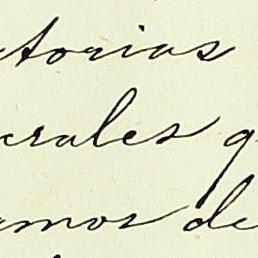 torias
rales q
amos de